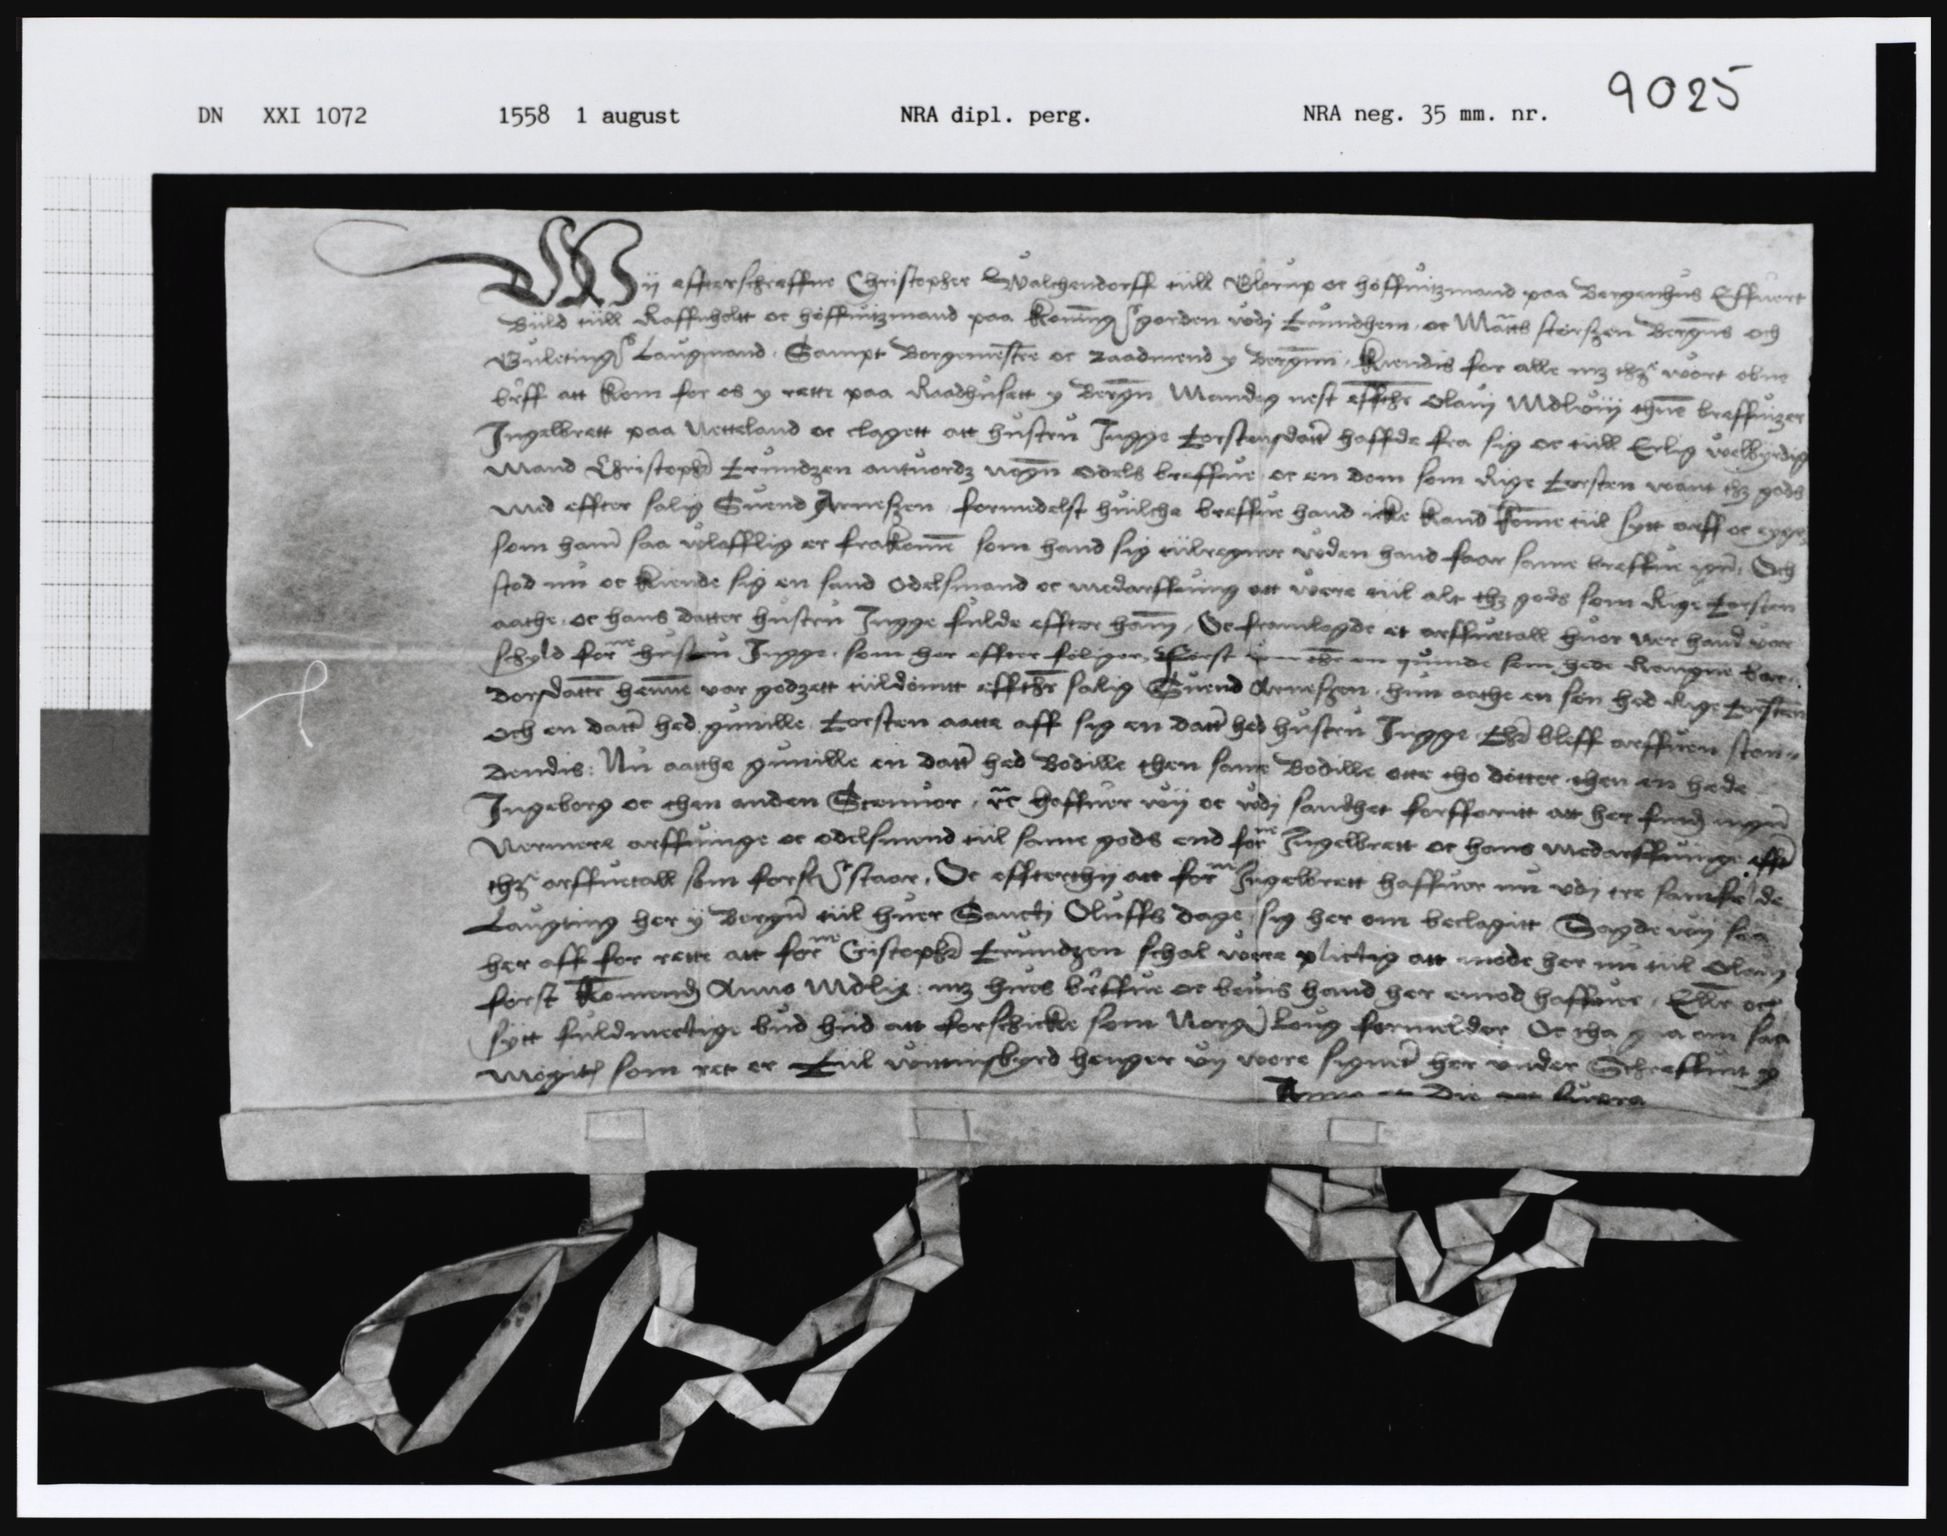 DN XXI 1072 1558 1 august NRA dipl. perg. NRA neg. 35 mm. nr. 9025
Wii effterschreffne Christopher Walchendorff tiill Glorup oc höffuitzmand paa Bergenhus Effuert
Biild tiill Raffnholtt oc höffuitzmand paa koningsgorden vdj Trundhem oc Matth störszen Bergens och
Guletings Laugmand Sampt Borgemestre oc Raadmend y Bergenn kiendis for alle mz thz wort obne
breff att kom for os y rette paa Raadhusett y Bergn Mandag nest effthr Olaui Mdlviij thne breffuizer
Ingelbrett paa Netteland oc clagett att hustru Jngge Torstensdattr haffde fra sig oc tiill Erlig velbyrdig
Mand Christophr Trundzen antuordz nogn odels breffue oc en dom som Rige Torsten want thz gods
med effter salig Suend Arneszen formedelst huilche breffue hand icke kand kome tiil sytt arff oc eyge
som hanm saa vlafflig er frakomen som hand sig tiilregner vden hand faar same breffue ygen Och
stod nu oc kiende sig en sand odelsmand oc medarffuing att were tiil alt thz gods som Rige Torsten
aathe oc hans datter hustru Jngge fulde effter hanm Oc framlagde et arffuetall huor ner hand var
schyld forne hustru Jngge som her effter fölger Först en quinde som hede Rangne bar
dorsdattr henne var godzett tiildömtt effthr salig Suend Arneszen hun aathe en sön hed Rige Torsten
och en dattr hed gunille Torsten aatte aff sig en dattr hed hustru Jngge Thr bleff arffuen stan
dendis Nu aatthe gunille en dattr hed Bodille then same Bodille otte tho dötter then en hede
Jngeborg oc then anden Stenuor rc haffuer wij oc vdj sandhet forffaritt att her finds ingen
Nermere arffuinge oc odelsmend tiil same gods end forne Jngelbrett oc hans medarffuinge efft
thz arffuetall som forschr staar Oc effterthij att forne Jngelbrett haffuer nu vdj tre samfelde
Laugting her y Bergn tiil huer Sancti Oluffs dage sig her om beclagitt Sagde wij saa
her aff for rette att forne Cristophr Trundzen schal were plictig att möde her nu tiil Olaui
först komends Anno Mdlix mz hues breffue oc beuis hand her emod haffuer Ellr oc
sytt fuldmectige bud hiid att forschicke som Norgs Loug formelder Oc tha gaa om saa
mögitt som ret er Tiil vittnisbyrd henger vy vore signetr her under Schreffuit y
Anno et Die vt supra